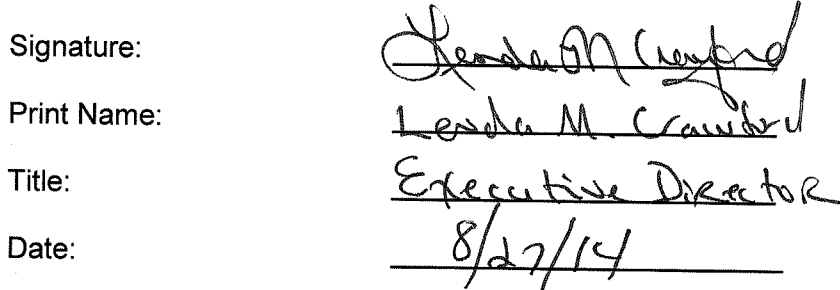 Signature: Lenda M Crawford
Print Name: Lenda M. Crawford
Title: Executive Director
Date: 8/27/14